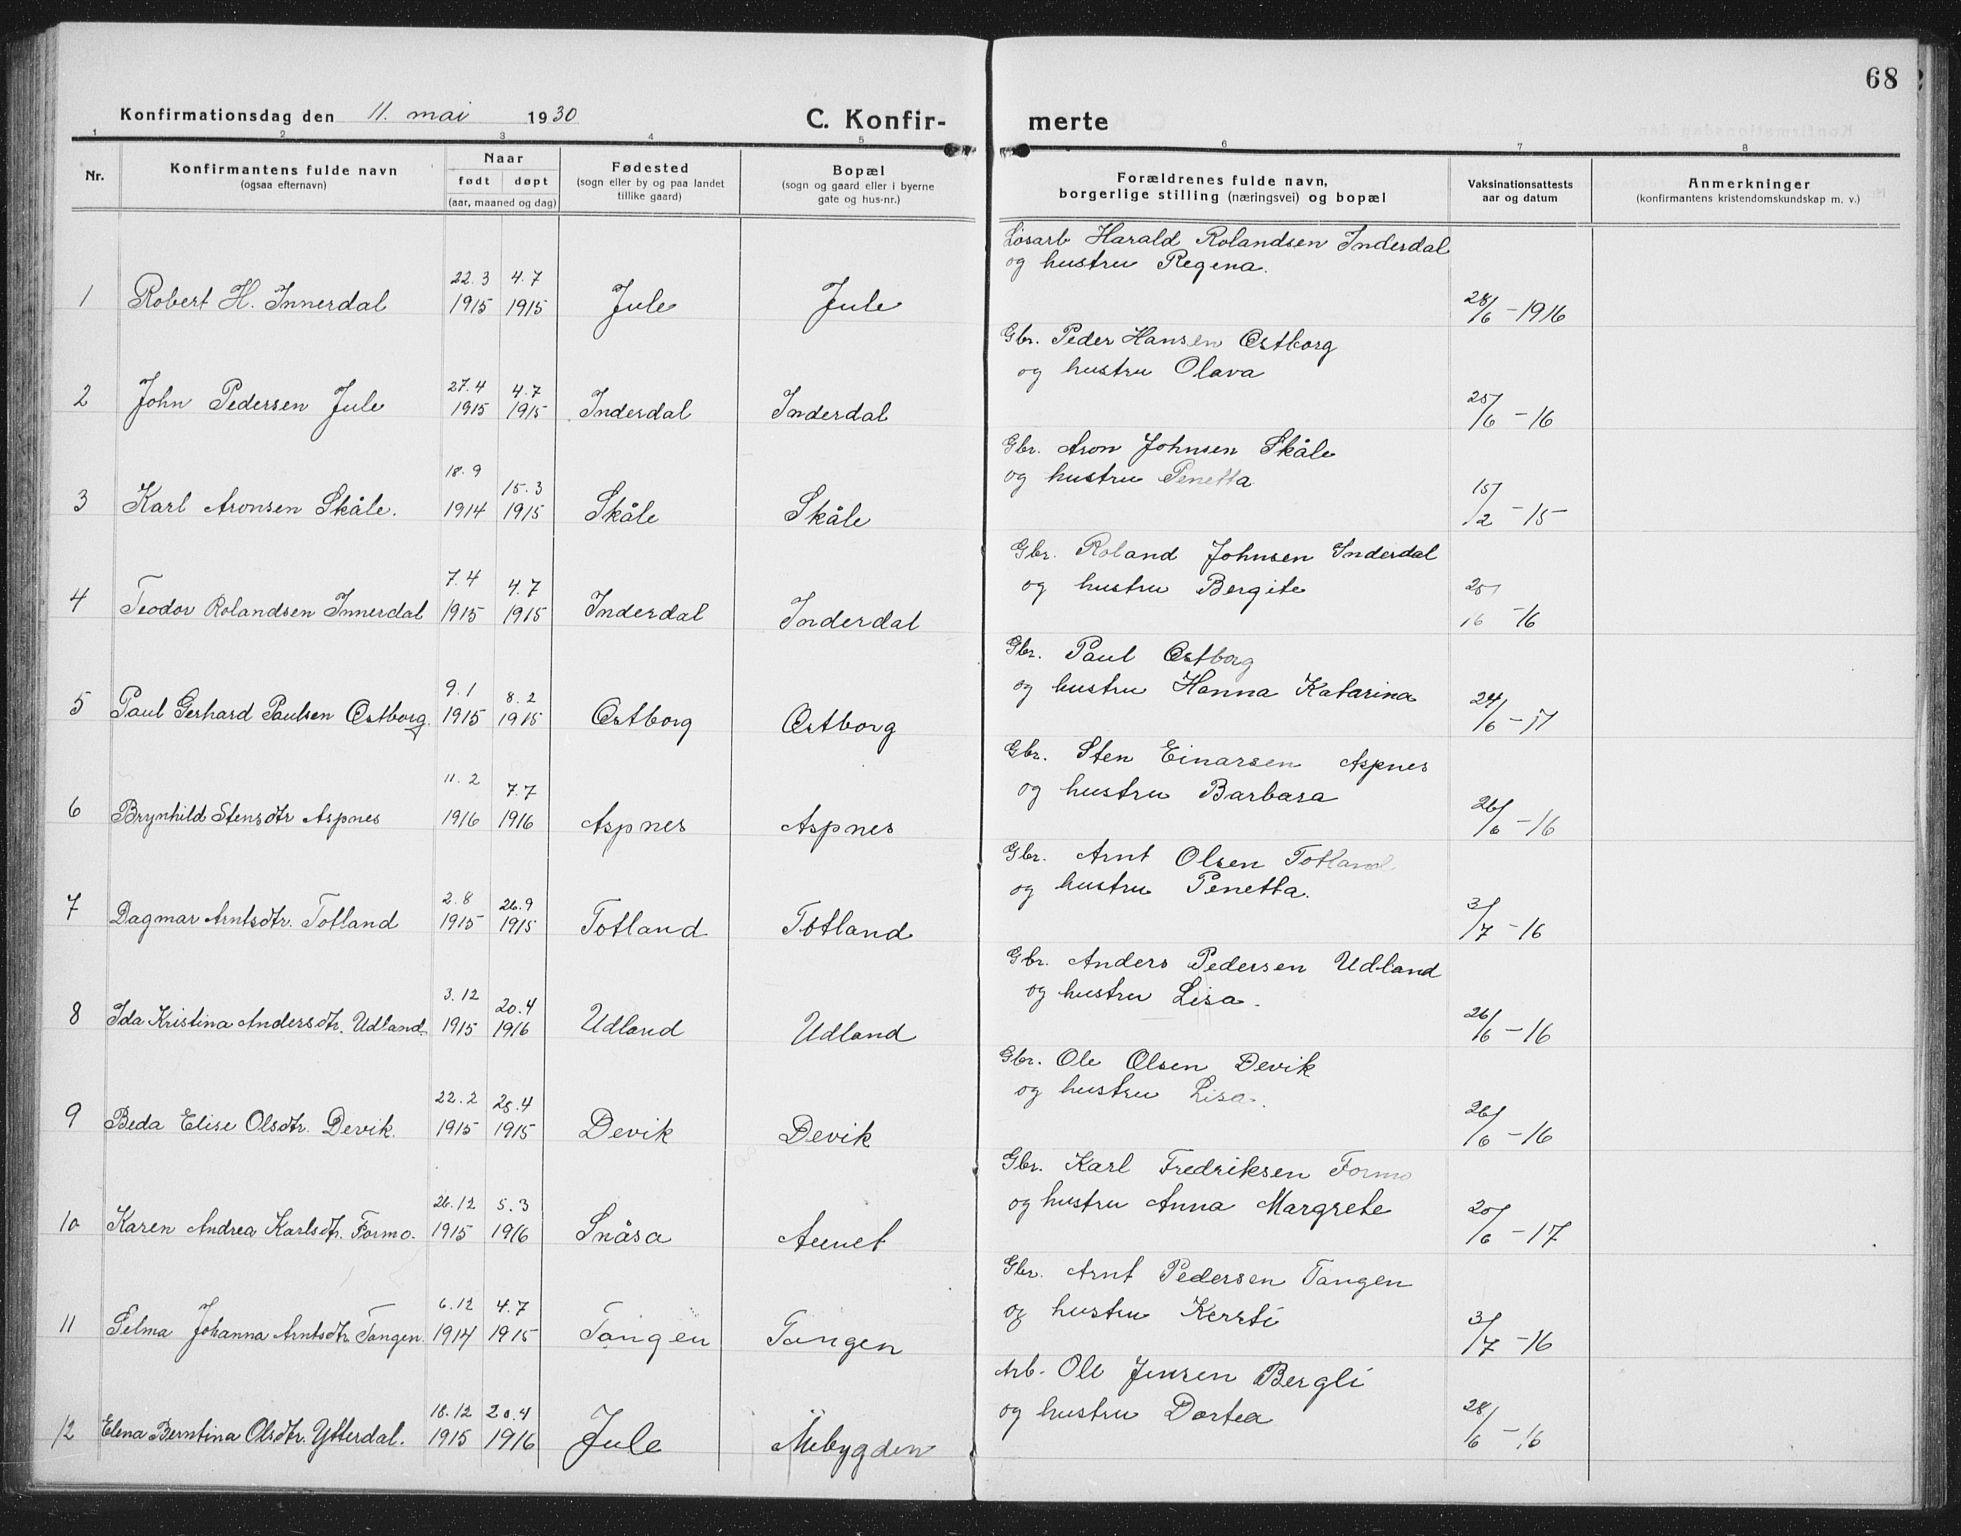 68
Konfirmationsdag den 11. mai 1930 C. Konfir- merte
1 2 3 4 5 6 7 8
Nr. Konfirmantens fulde navn (ogsaa efternavn) Naar født døpt (aar, maaned og dag) Fødested (sogn eller by og paa landet tillike gaard) Bopæl (sogn og gaard eller i byerne gate og hus-nr.) Forældrenes fulde navn, borgerlige stilling (næringsvei) og bopæl Vaksinationsattests aar og datum Anmerkninger (konfirmantens kristendomskundskap m. v.)
Løsarb Harald Rolandsen Inderdal
og hustru Regina.
1 Robert H. Innerdal 22.3 1915 4.7 1915 Jule Jule 28/6 - 1916
Gbr. Peder Hansen Østborg
og hustru Olava
2 John Pedersen Jule 27.4 1915 4.7 1915 Inderdal Inderdal 25/6 - 16
Gbr. Aron Johnsen Skåle
og hustru Penetta
3 Karl Aronsen Skåle. 18.9 1914 15.3 1915 Skåle Skåle 15/2 - 15
Gbr. Roland Johnsen Inderdal
og hustru Bergite
4 Teodor Rolandsen Innerdal 7.4 1915 4.7 1915 Inderdal Inderdal 25/6 - 16
Gbr. Paul Østborg
og hustru Hanna Katarina
5 Paul Gerhard Paulsen Østborg. 9.1 1915 8.2 1915 Østborg Østborg 24/6 - 17
Gbr. Sten Einarsen Aspnes
og hustru Barbara
6 Brynhild Stensdtr Aspnes 11.2 1916 7.7 1916 Aspnes Aspnes 26/6 - 16
Gbr. Arnt Olsen Totland
og hustru Penetta.
7 Dagmar Arntsdtr. Totland 2.8 1915 26.9 1915 Totland Totland 3/7 - 16
Gbr. Anders Pedersen Udland
og hustru Lisa.
8 Ida Kristina Andersdtr. Udland. 3.12 1915 20.4 1916 Udland Udland 26/6 - 16
Gbr. Ole Olsen Devik
og hustru Lisa.
9 Beda Elise Olsdtr. Devik. 22.2 1915 25.4 1915 Devik Devik 26/6 - 16
Gbr. Karl Fredriksen Formo
og hustru Anna Margrete
10 Karen Andrea Karlsdtr. Formo. 26.12 1915 5.3 1916 Snåsa Aunet 20/6 - 17
Gbr. Arnt Pedersen Tangen
og hustru Kersti
11 Selma Johanna Arntsdtr Tangen. 6.12 1914 4.7 1915 Tangen Tangen 3/7 - 16
Arb. Ole Jensen Bergli
og hustru Dortea
12 Elena Berntina Olsdtr. Ytterdal. 18.12 1915 20.4 1916 Jule Mebygden 28/6 - 16